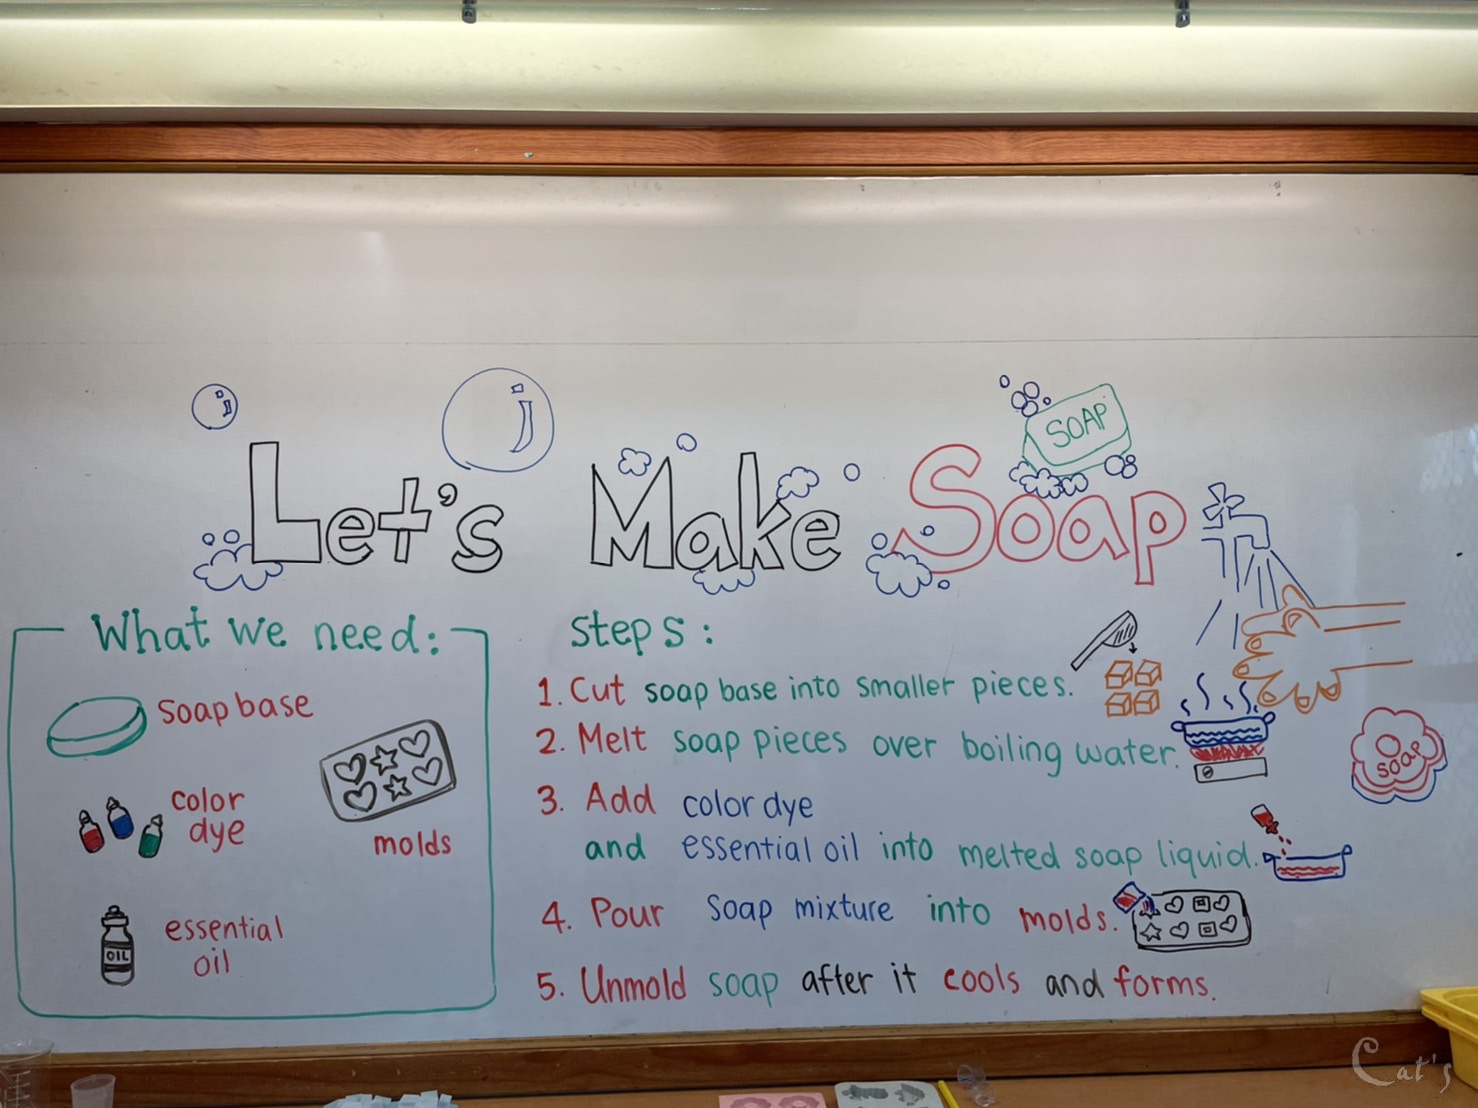 Let's Make Soap
SOAP
What we need:
soap base
color
dye
molds
OIL
essential
oil
Steps:
1. Cut soap base into smaller pieces.
2. Melt soap pieces over boiling water.
3. Add color dye
and essential oil into melted soap liquid.
4. Pour soap mixture into molds.
5. Unmold soap after it cools and forms.
SOAP
Cat's